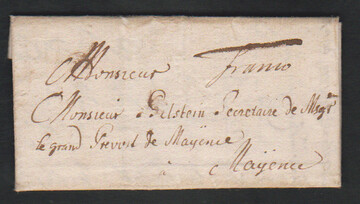 Monsieur franco
Monsieur Gilstein Secretaire de Msgr
le grand Prevost de Mayence
à
Mayence